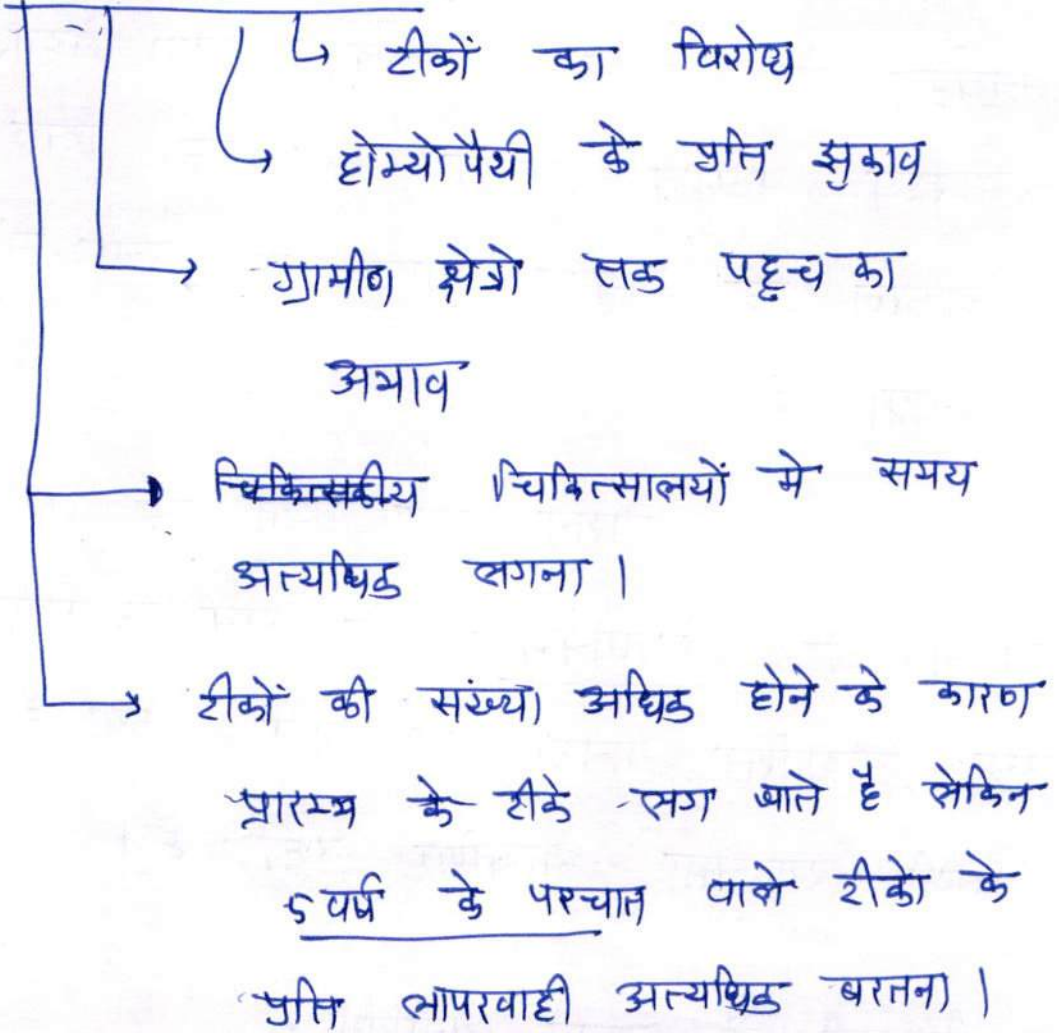 टीकों का विरोध
होम्योपैथी के प्रति झुकाव
ग्रामीण क्षेत्रो तक पहुच का
अभाव
चिकित्सकीय चिकित्सालयों मे समय
अत्यधिक लगना।
टीकों की संख्या अधिक होने के कारण
प्रारम्भ के टीके लग जाते है लेकिन
5 वर्ष के पश्चात वाले टीको के
प्रति लापरवाही अत्यधिक बरतना।